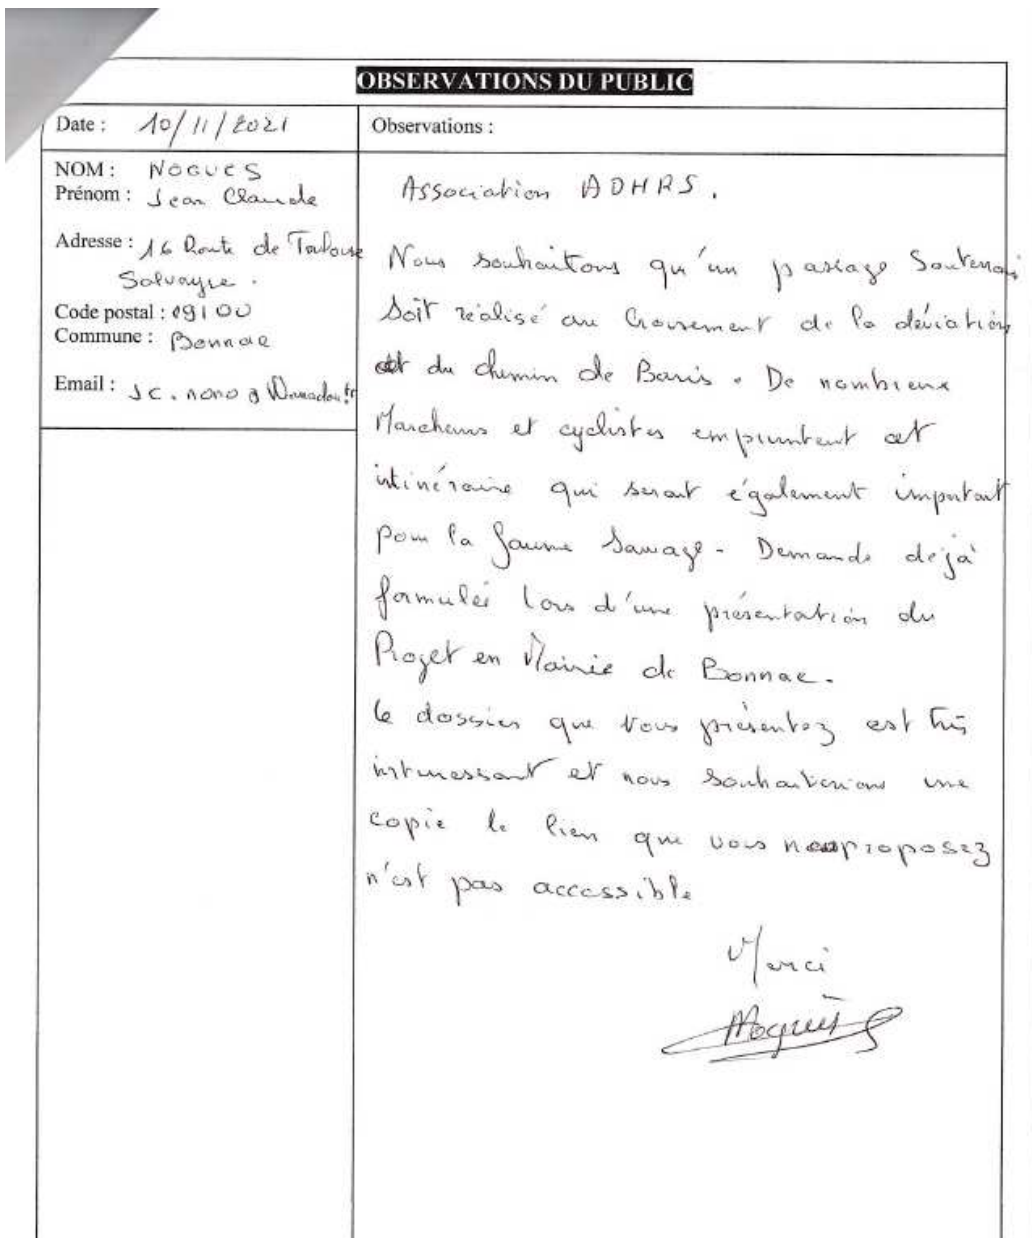 OBSERVATIONS DU PUBLIC
Date : 10/11/2021
NOM : NOGUES
Prénom : Jean Claude
Adresse : 16 Route de Toulouse
Salvayre .
Code postal : 09100
Commune : Bonnac
Email : JC.nono@Wanadoo.fr
Observations :
Association ADHRS .
Nous souhaitons qu'un passage Souterrain
soit réalisé au Croisement de la déviation
et du chemin de Baris . De nombreux
Marcheurs et cyclistes empruntent cet
intinéraire qui serait également important
pour la faune sauvage - Demande déjà
formulée lors d'une présentation du
Projet en Mairie de Bonnac .
Le dossier que vous présentez est très
intéressant et nous souhaiterions une
copie le lien que vous proposez
n'est pas accessible
Merci